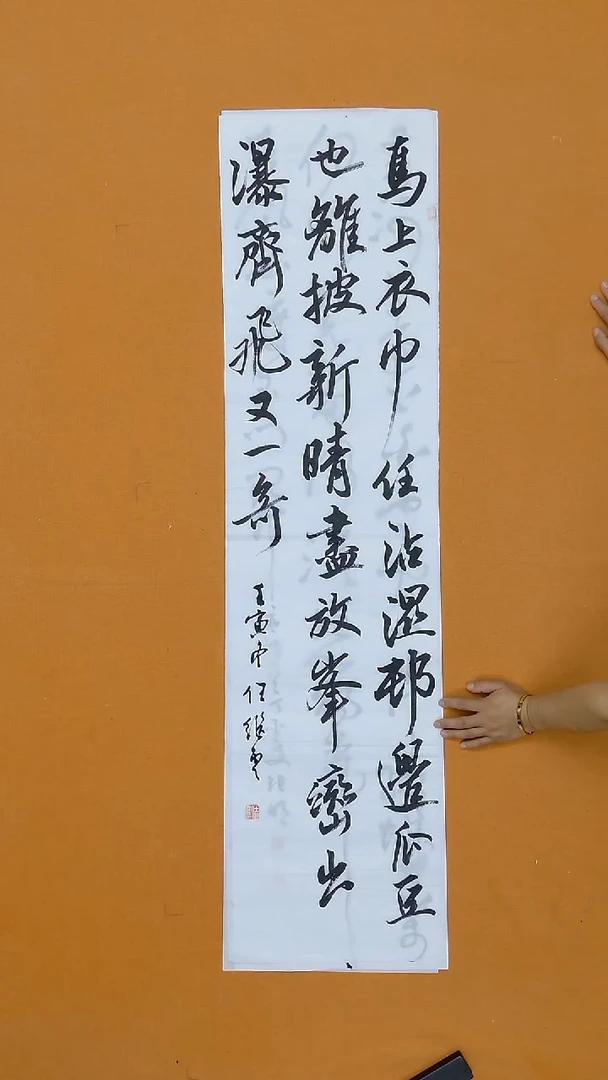 馬上衣巾任沾濕邨邊瓜豆
也離披新晴盡放峯巒出
瀑齊飛又一奇
壬寅